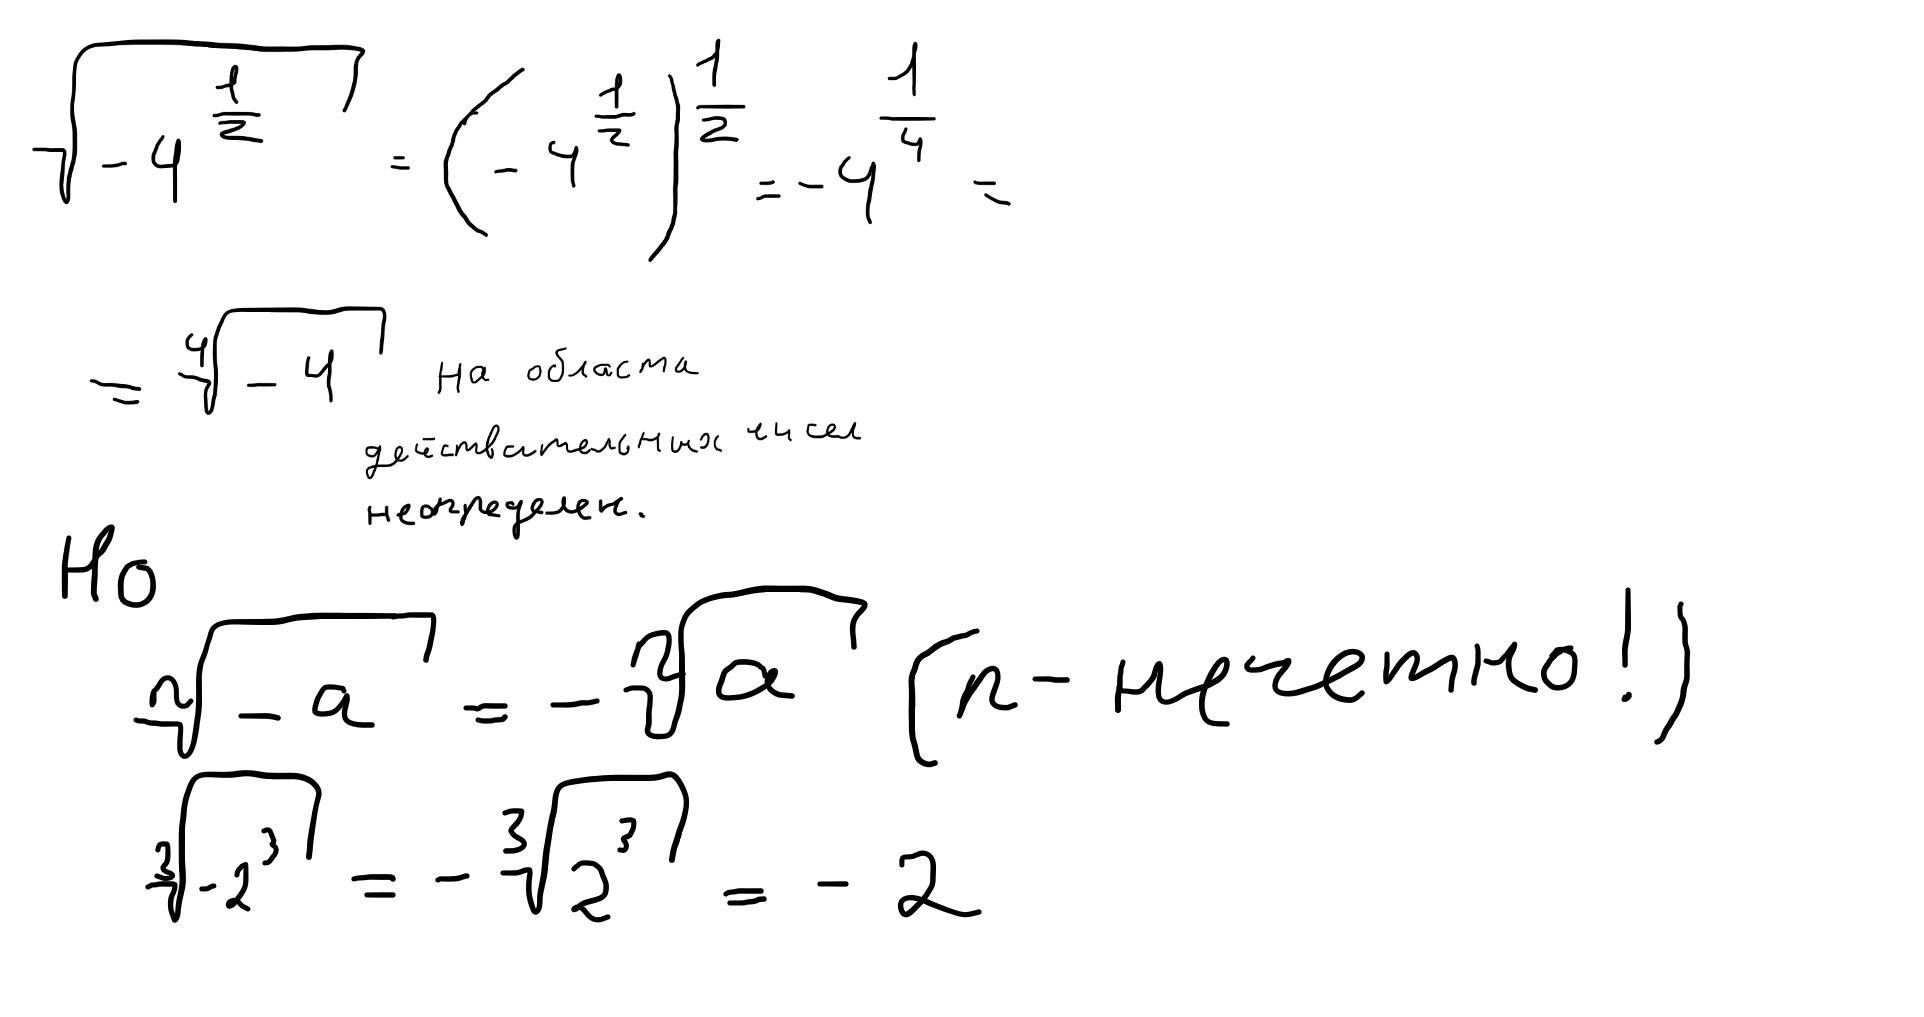 √(-4^(1/2)) = (-4^(1/2))^(1/2) = -4^(1/4) =
= ⁴√(-4) На области
действительных чисел
неопределен.
Но
ⁿ√(-a) = -ⁿ√a (n - нечетно!)
³√(-2³) = -³√(2³) = -2